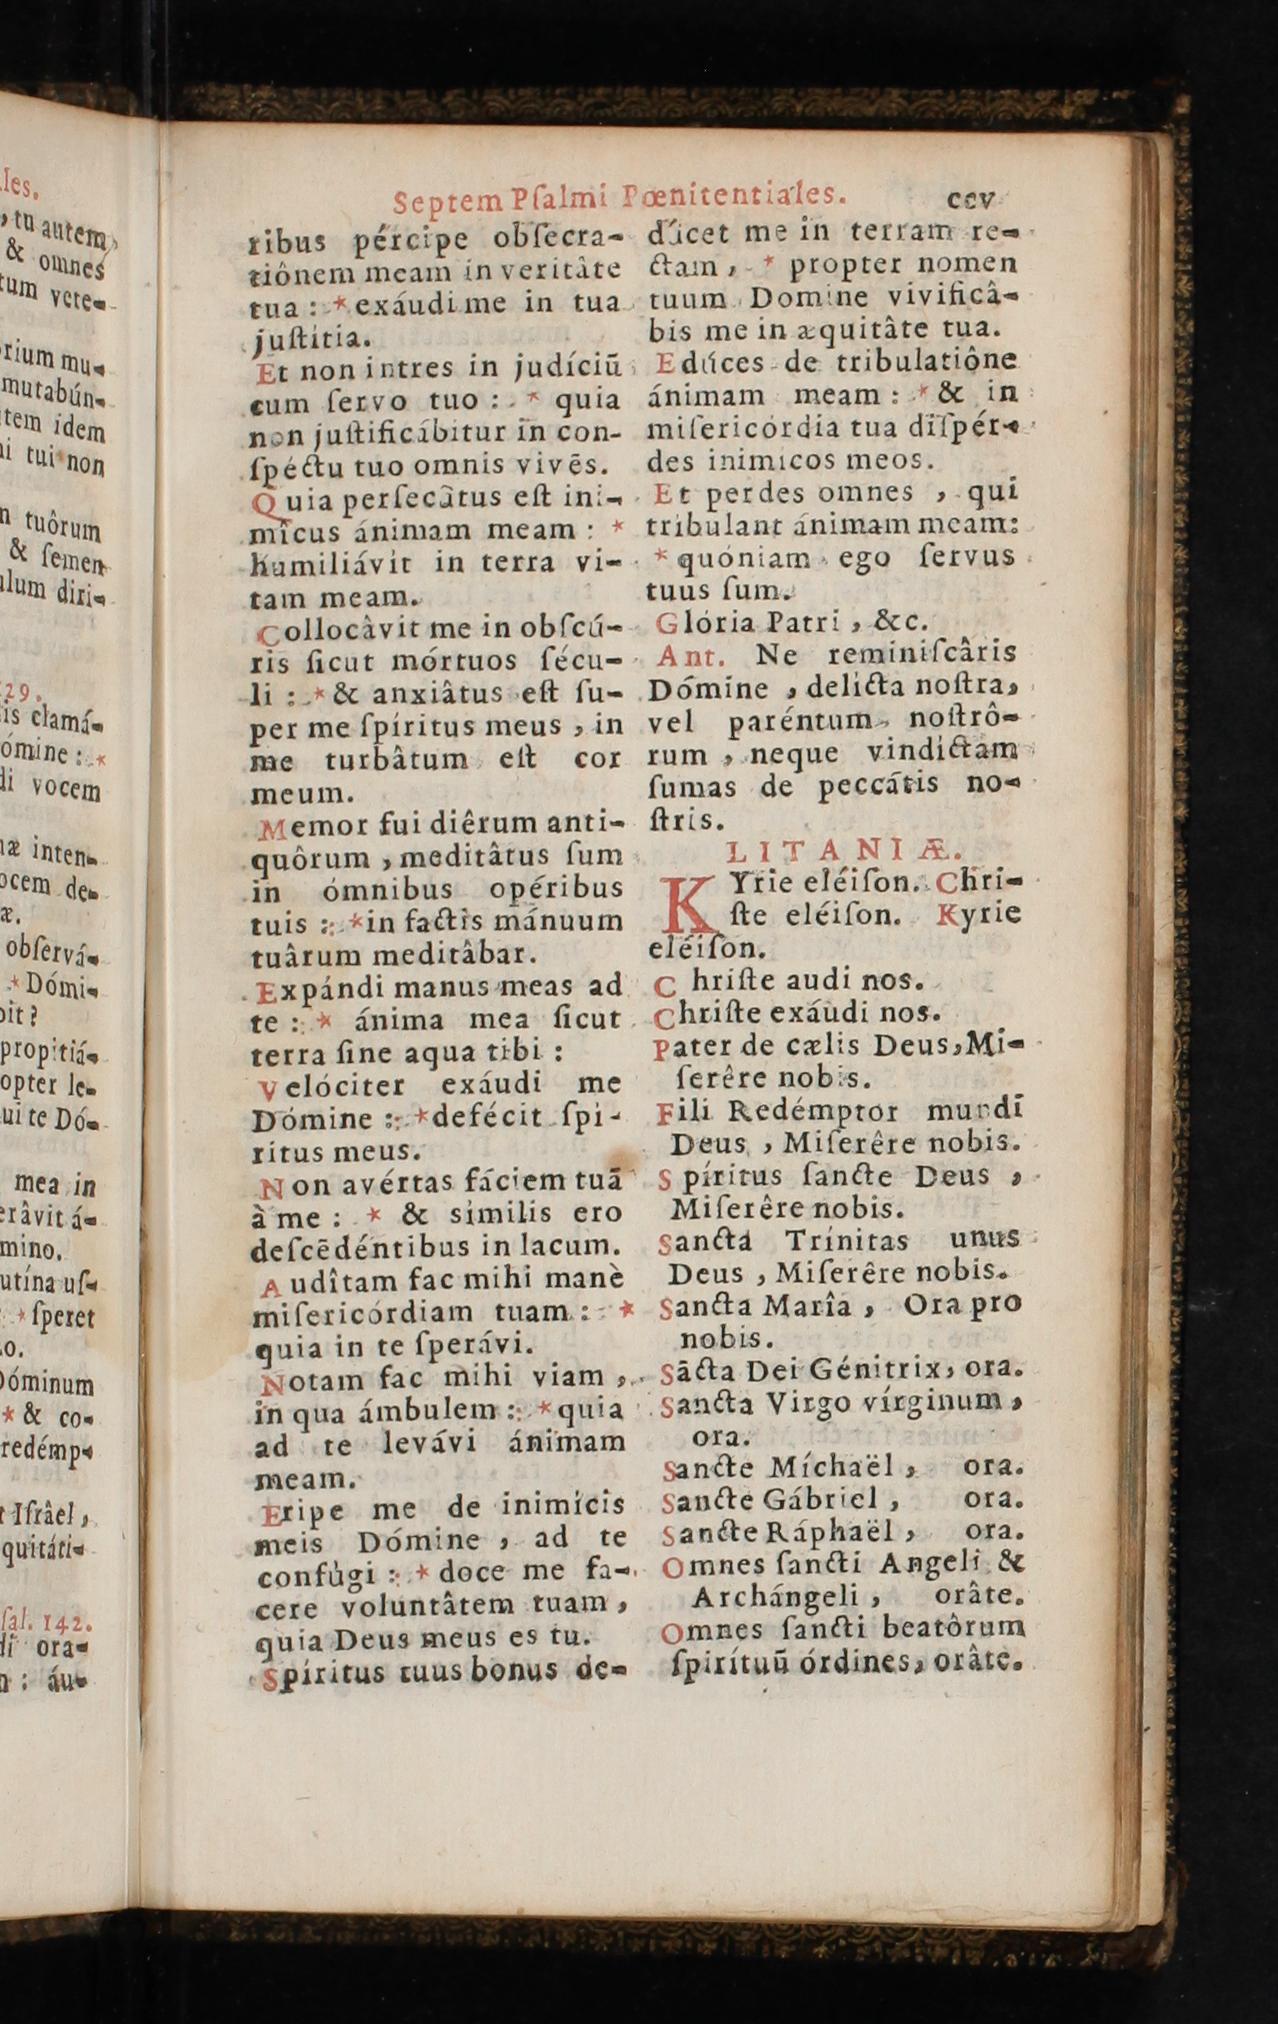 les.
, tu autem
& omnes
tum vete-
rium mu-
mutabún-
tem idem
i tui non
n tuôrum
& ſemen
ulum diri-
29.
is clamá-
ómine : *
di vocem
æ inten-
ocem de-
æ.
obſervá-
* Dómi-
it ?
propitiá-
opter le-
ui te Dó-
mea in
erâvit á-
mino.
utína uſ-
* ſperet
o.
Dóminum
* & co-
redémp-
t Iſrâel ,
quitáti-
ſal. 142.
di ora-
n : áu-
Septem Pſalmi Pœnitentiales. ccv
ribus pércipe obſecra-
tiônem meam in veritâte
tua : * exáudi me in tua
juſtitia.
Et non intres in judíciū
cum ſervo tuo : * quia
non juſtificábitur in con-
ſpéctu tuo omnis vivēs.
Quia perſecâtus eſt ini-
micus ánimam meam : *
humiliávit in terra vi-
tam meam.
Collocàvit me in obſcú-
ris ſicut mórtuos ſécu-
li : * & anxiâtus eſt ſu-
per me ſpíritus meus , in
me turbâtum eſt cor
meum.
Memor fui diêrum anti-
quôrum , meditâtus ſum
in ómnibus opéribus
tuis : * in factis mánuum
tuârum meditâbar.
Expándi manus meas ad
te : * ánima mea ſicut
terra ſine aqua tibi :
Velóciter exáudi me
Dómine : * defécit ſpi-
ritus meus.
Non avértas fáciem tuā
à me : * & similis ero
deſcēdéntibus in lacum.
Audîtam fac mihi manè
miſericórdiam tuam : *
quia in te ſperávi.
Notam fac mihi viam ,
in qua ámbulem : * quia
ad te levávi ánimam
meam.
Eripe me de inimícis
meis Dómine , ad te
confùgi : * doce me fa-
cere voluntâtem tuam ,
quia Deus meus es tu.
Spíritus tuus bonus de-
dúcet me in terram re-
ctam , * propter nomen
tuum Domine vivificâ-
bis me in æquitâte tua.
Edúces de tribulatiône
ánimam meam : * & in
miſericórdia tua diſpér-
des inimicos meos.
Et perdes omnes , qui
tribulant ánimam meam:
* quóniam ego ſervus
tuus ſum.
Glória Patri , &c.
Ant. Ne reminiſcâris
Dómine , delicta noſtra,
vel paréntum noſtrô-
rum , neque vindictam
ſumas de peccátis no-
ſtris.
LITANIÆ.
KYrie eléiſon. Chri-
ſte eléiſon. Kyrie
eléiſon.
Chriſte audi nos.
Chriſte exáudi nos.
Pater de cælis Deus, Mi-
ſerêre nobis.
Fili Redémptor mundi
Deus , Miſerêre nobis.
Spíritus ſancte Deus ,
Miſerêre nobis.
Sancta Trínitas unus
Deus , Miſerêre nobis.
Sancta Marîa , Ora pro
nobis.
Sācta Dei Génitrix, ora.
Sancta Virgo vírginum ,
ora.
Sancte Míchaël , ora.
Sancte Gábriel , ora.
Sancte Ráphaël , ora.
Omnes ſancti Angeli &
Archángeli , orâte.
Omnes ſancti beatôrum
ſpirítuū órdines, orâte.